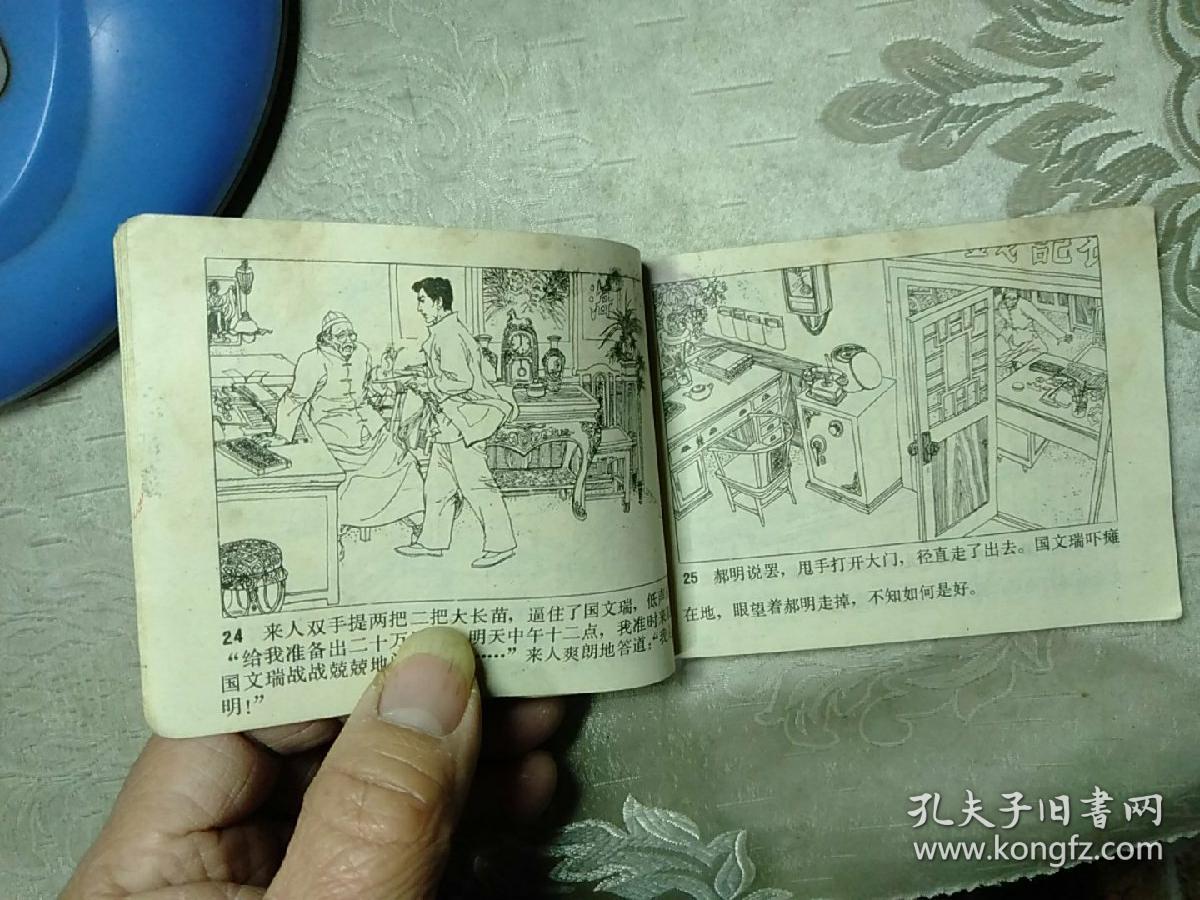 24 来人双手提两把二把大长苗，逼住了国文瑞，低声
“给我准备出二十万 明天中午十二点，我准时来
国文瑞战战兢兢地 ……”来人爽朗地答道：“我
明！”
25 郝明说罢，甩手打开大门，径直走了出去。国文瑞吓瘫
在地，眼望着郝明走掉，不知如何是好。
孔夫子旧書网
www.kongfz.com